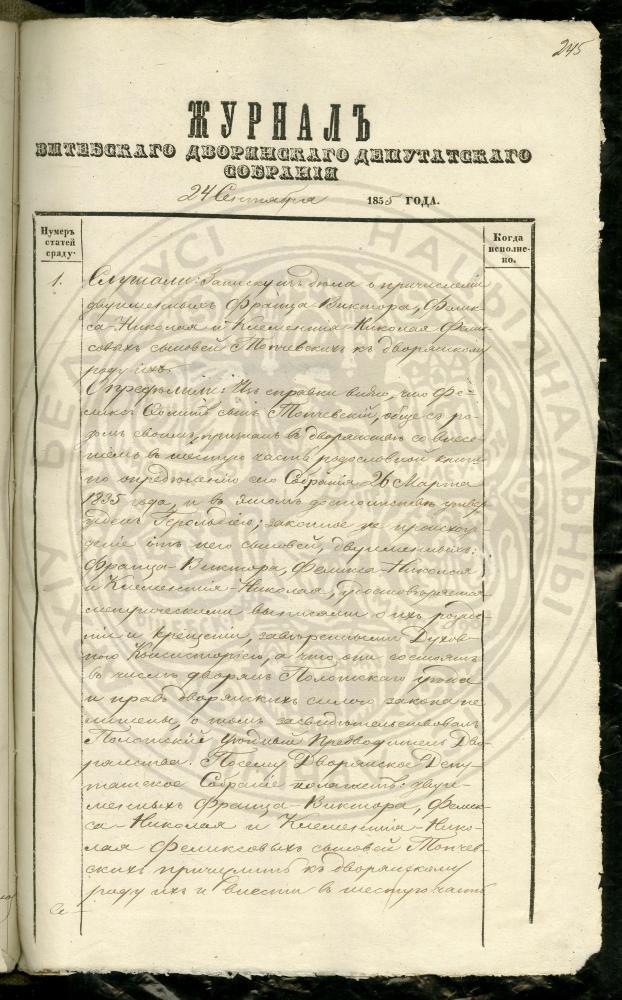 245
ЖУРНАЛЪ
ВИТЕБСКАГО ДВОРЯНСКАГО ДЕПУТАТСКАГО
СОБРАНІЯ
24 Сентября 1855 ГОДА.
Нумеръ
статей
сряду.
Когда
исполне-
но.
1. Слушали: Записку изъ дѣла о причисленіи
двуименныхъ Франца-Виктора, Фелик-
са-Николая и Клементія-Николая Фелик-
совыхъ сыновей Топчевскихъ къ дворянскому
роду ихъ.
Опредѣлили: Изъ справки видно, что Фе-
ликсъ сынъ Топчевскій, обще съ ро-
домъ своимъ, признанъ въ дворянствѣ со внесе-
ніемъ въ шестую часть родословной книги
по опредѣленію сего Собранія 26 Марта
1835 года, и въ этомъ достоинствѣ утвер-
жденъ Герольдіею; законное же происхож-
деніе отъ него сыновей, двуименныхъ:
Франца-Виктора, Феликса-Николая
и Клементія-Николая, удостовѣряется
метрическими выписями о ихъ рожде-
ніи и крещеніи, завѣренными Духов-
ною Консисторіею, а что они состоятъ
въ числѣ дворянъ Полотскаго уѣзда
и правъ дворянскихъ силою закона не
лишены, о томъ засвидѣтельствовалъ
Полотскій уѣздный Предводитель Дво-
рянства. Посему Дворянское Депу-
татское Собраніе полагаетъ: двуи-
менныхъ Франца-Виктора, Феликс-
са-Николая и Клементія-Нико-
лая Феликсовыхъ сыновей Топчев-
скихъ причислить къ дворянскому
роду ихъ и внести въ шестую часть
БЕЛАРУСІ
НАЦЫЯНАЛЬНЫ